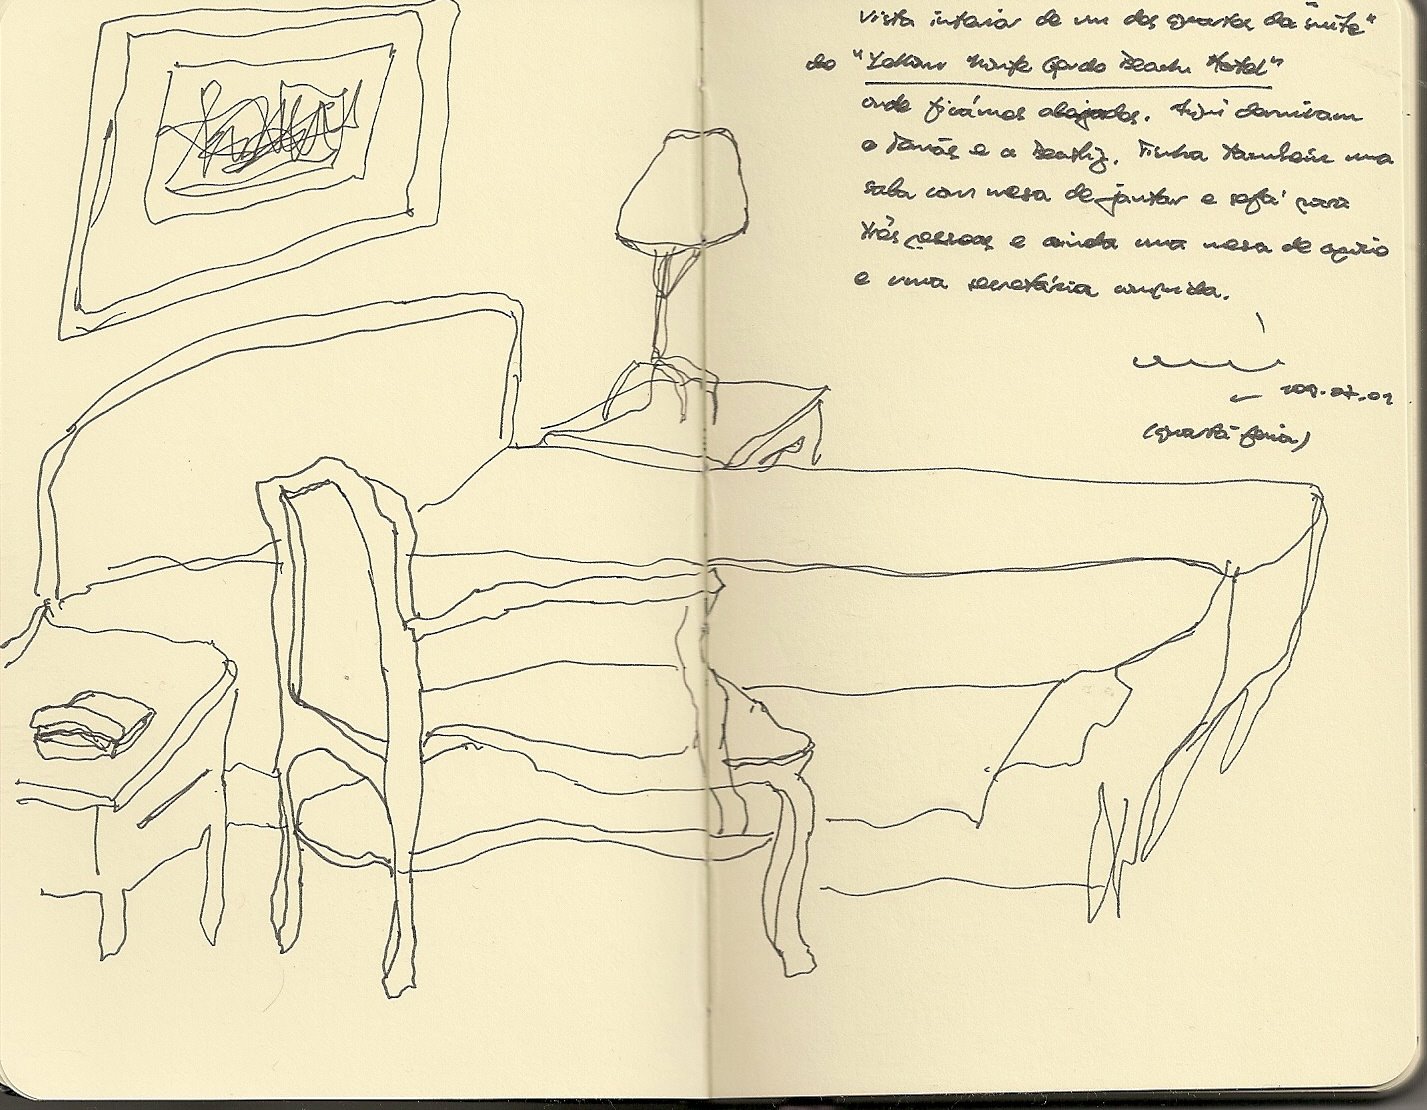 vista interior de um dos quartos da "suite"
do "Monte Gordo Beach Hotel"
onde ficámos alojados. Aqui dormiram
o Tomás e a Beatriz. Tinha também uma
sala com mesa de jantar e sofá para
três pessoas e ainda uma mesa de apoio
e uma secretária comprida.
(quarta-feira)